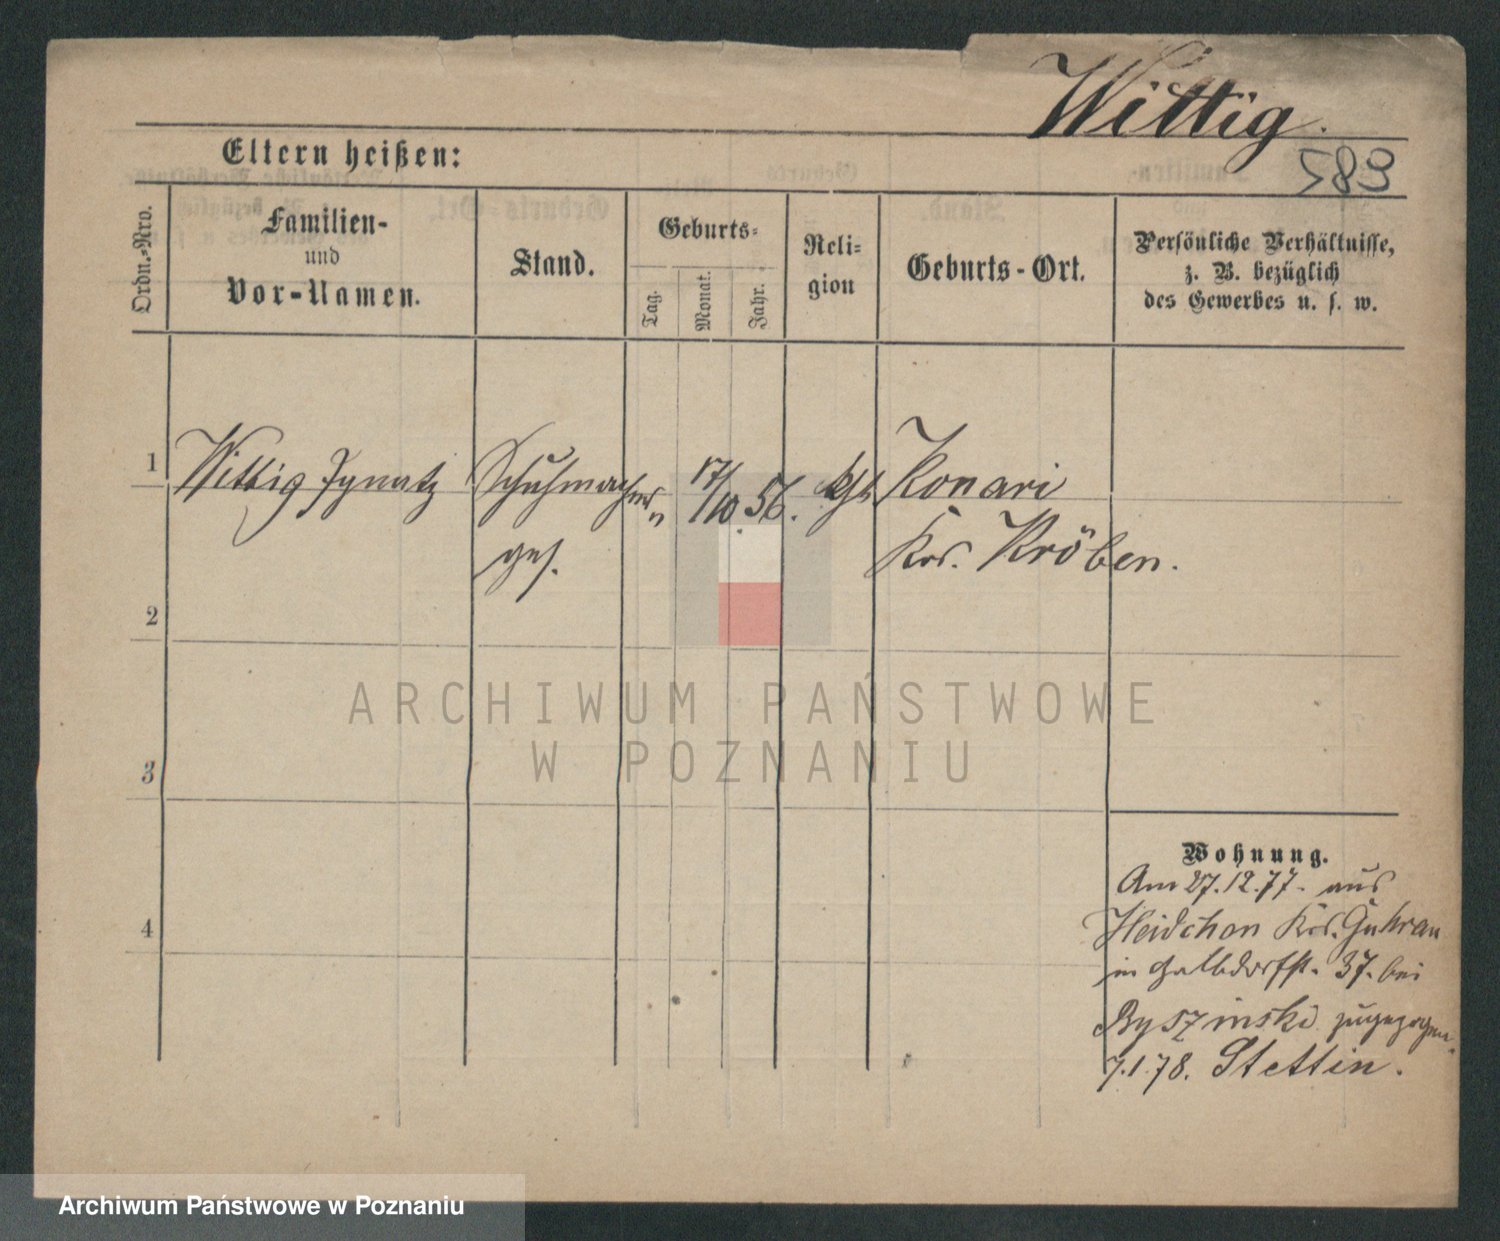 Wittig.
583
Eltern heißen:
Ordn.-Nro.
Familien-
und
Vor-Namen.
Stand.
Geburts-
Tag.
Monat.
Jahr.
Reli-
gion
Geburts-Ort.
Persönliche Verhältnisse,
z. B. bezüglich
des Gewerbes u. s. w.
1 Wittig Ignatz Schuhmacher 17/10 56. kth Konari
ges. Krs. Kröben.
2
ARCHIWUM PAŃSTWOWE
W POZNANIU
3
Wohnung.
Am 27.12.77. aus
Heidchen Krs. Guhrau
4
in Halbdorfst. 37. bei
Byszinski zugezogen.
7.1.78. Stettin.
Archiwum Państwowe w Poznaniu